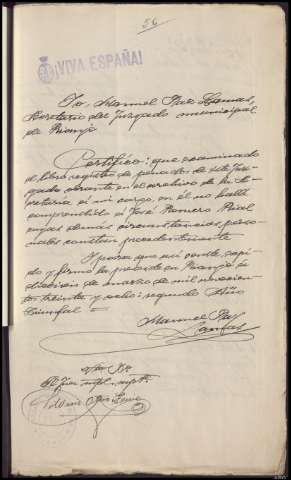 56
¡VIVA ESPAÑA!
Yo, Manuel Ras Llamas,
Secretario del Juzgado municipal
de Rianjo
Certifico: que examinado
el libro registro de penados de este Juz-
gado obrante en el archivo de la Se-
cretaría a mi cargo, en él no hallé
comprendido a José Romero Rial
cuyas demás circunstancias perso-
nales constan precedentemente
Y para que así conste, expi-
do y firmo la presente en Rianjo a
de marzo de mil novecien-
tos treinta y ocho. Segundo Año
Triunfal =
Manuel Ras
Llamas
Vº Bº
El Juez